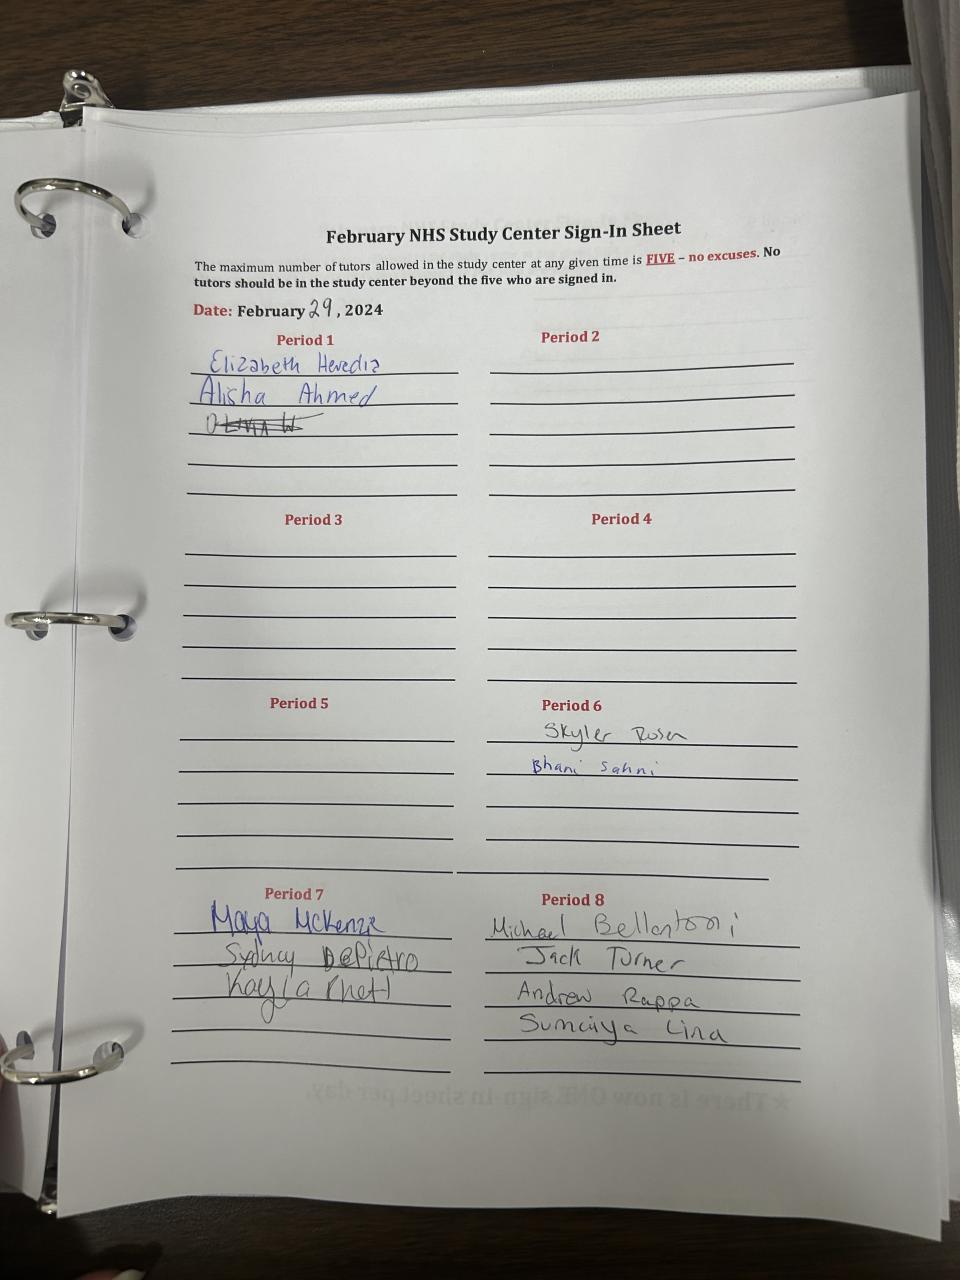 February NHS Study Center Sign-In Sheet
The maximum number of tutors allowed in the study center at any given time is FIVE – no excuses. No
tutors should be in the study center beyond the five who are signed in.
Date: February 29, 2024
Period 1
Elizabeth Heredia
Alisha Ahmed
Period 2
Period 3
Period 4
Period 5
Period 6
Skyler Rosen
Bhani Sahni
Period 7
Maya McKenzie
Sydney DePietro
Kayla
Period 8
Michael Bellantoni
Jack Turner
Andrew Rappa
Sumaiya Lina
★There is now ONE sign-in sheet per day.